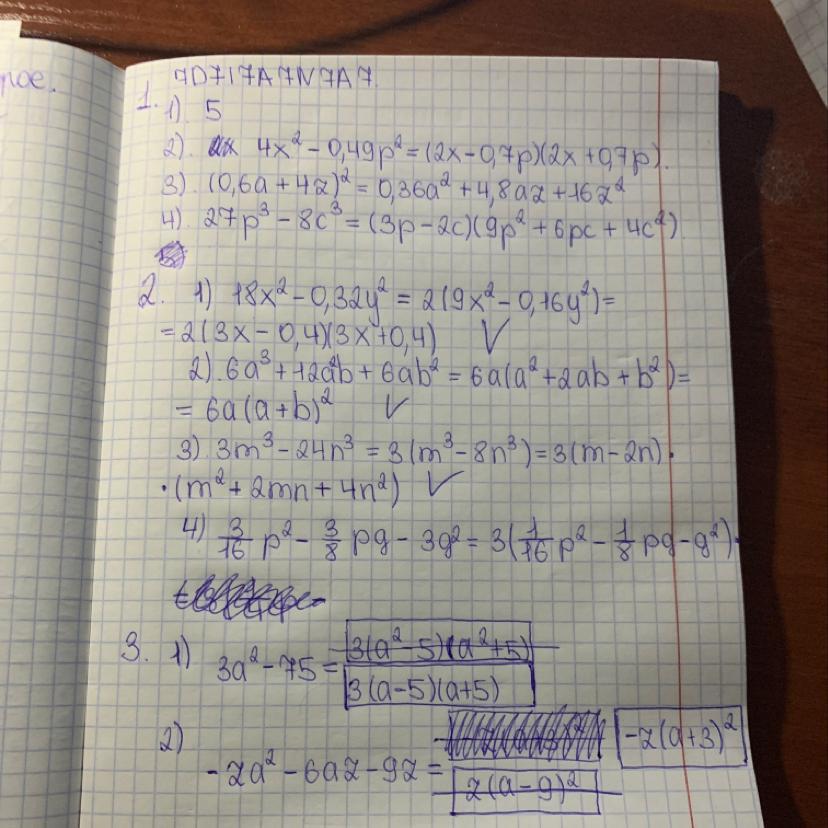 рое.
7D7I7A7N7A7.
1. 1) 5
2). 4x² - 0,49p² = (2x - 0,7p)(2x + 0,7p).
3). (0,6a + 4z)² = 0,36a² + 4,8az + 16z²
4). 27p³ - 8c³ = (3p - 2c)(9p² + 6pc + 4c²)
2. 1) 18x² - 0,32y² = 2(9x² - 0,16y²) =
= 2(3x - 0,4)(3x + 0,4) ✓
2). 6a³ + 12a²b + 6ab² = 6a(a² + 2ab + b²) =
= 6a(a + b)² ✓
3). 3m³ - 24n³ = 3(m³ - 8n³) = 3(m - 2n) ·
· (m² + 2mn + 4n²) ✓
4) 3/16 p² - 3/8 pg - 3g² = 3(1/16 p² - 1/8 pg - g²)
3. 1) 3a² - 75 = 3(a² - 5)(a² + 5)
3(a - 5)(a + 5)
2) -za² - 6az - 9z = -z(a + 3)²
z(a - 9)²